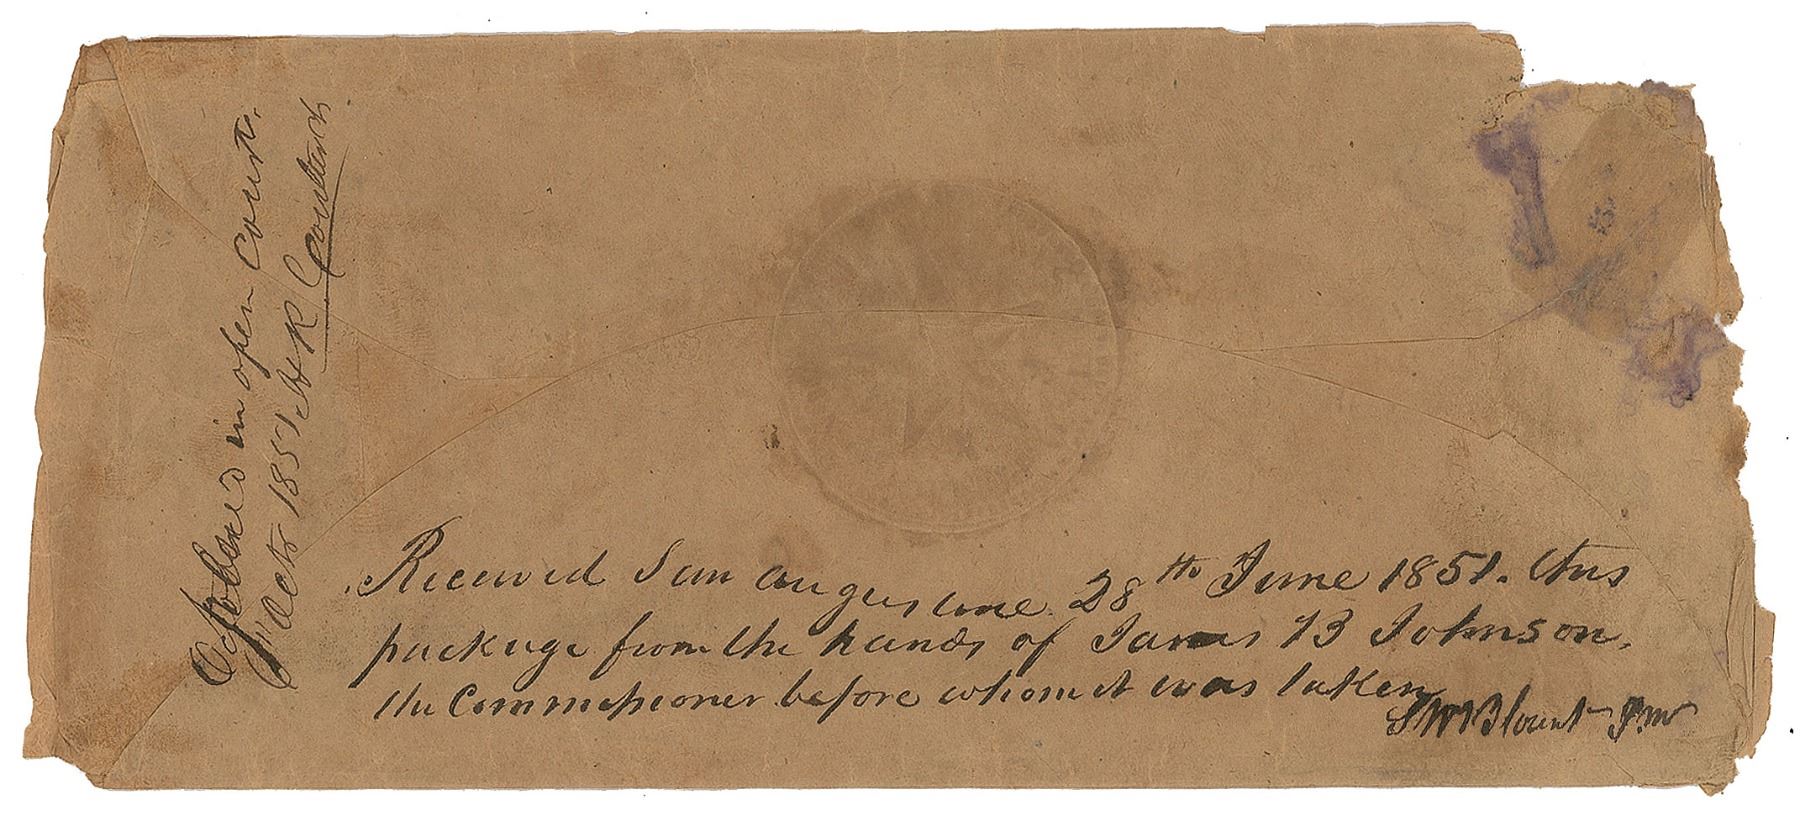 Received San augustine 28th June 1851. this
package from the hands of James B Johnson,
the Commissioner before whom it was taken
S W Blount P. M
in open Court.
1851 A R